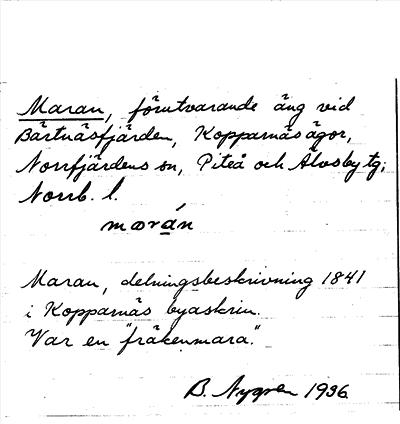 Maran, förutvarande äng vid
Bärtnäsfjärden, Kopparnäs ägor,
Norrfjärdens sn, Piteå och Älvsby tg;
Norrb. l.
marán
Maran, delningsbeskrivning 1841
i Kopparnäs byaskrin.
Var en "fräkenmara."
B. Nygren 1936